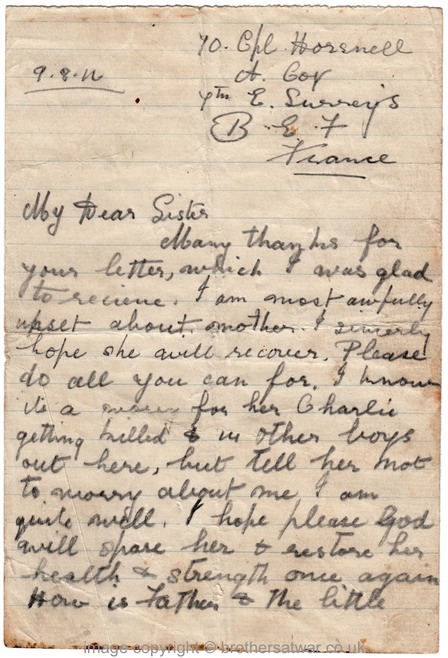 70. Cpl Horsnell
9.8.16
A. Coy
7th E. Surrey's
B. E. F
France
My Dear Sister
Many thanks for
your letter, which I was glad
to recieve. I am most awfully
upset about mother. I sincerly
hope she will recover. Please
do all you can for. I know
its a worry for her Charlie
getting killed & us other boys
out here, but tell her not
to worry about me I am
quite well. I hope please God
will spare her & restore her
health & strength once again
How is Father & the little
image copyright © brothersatwar.co.uk